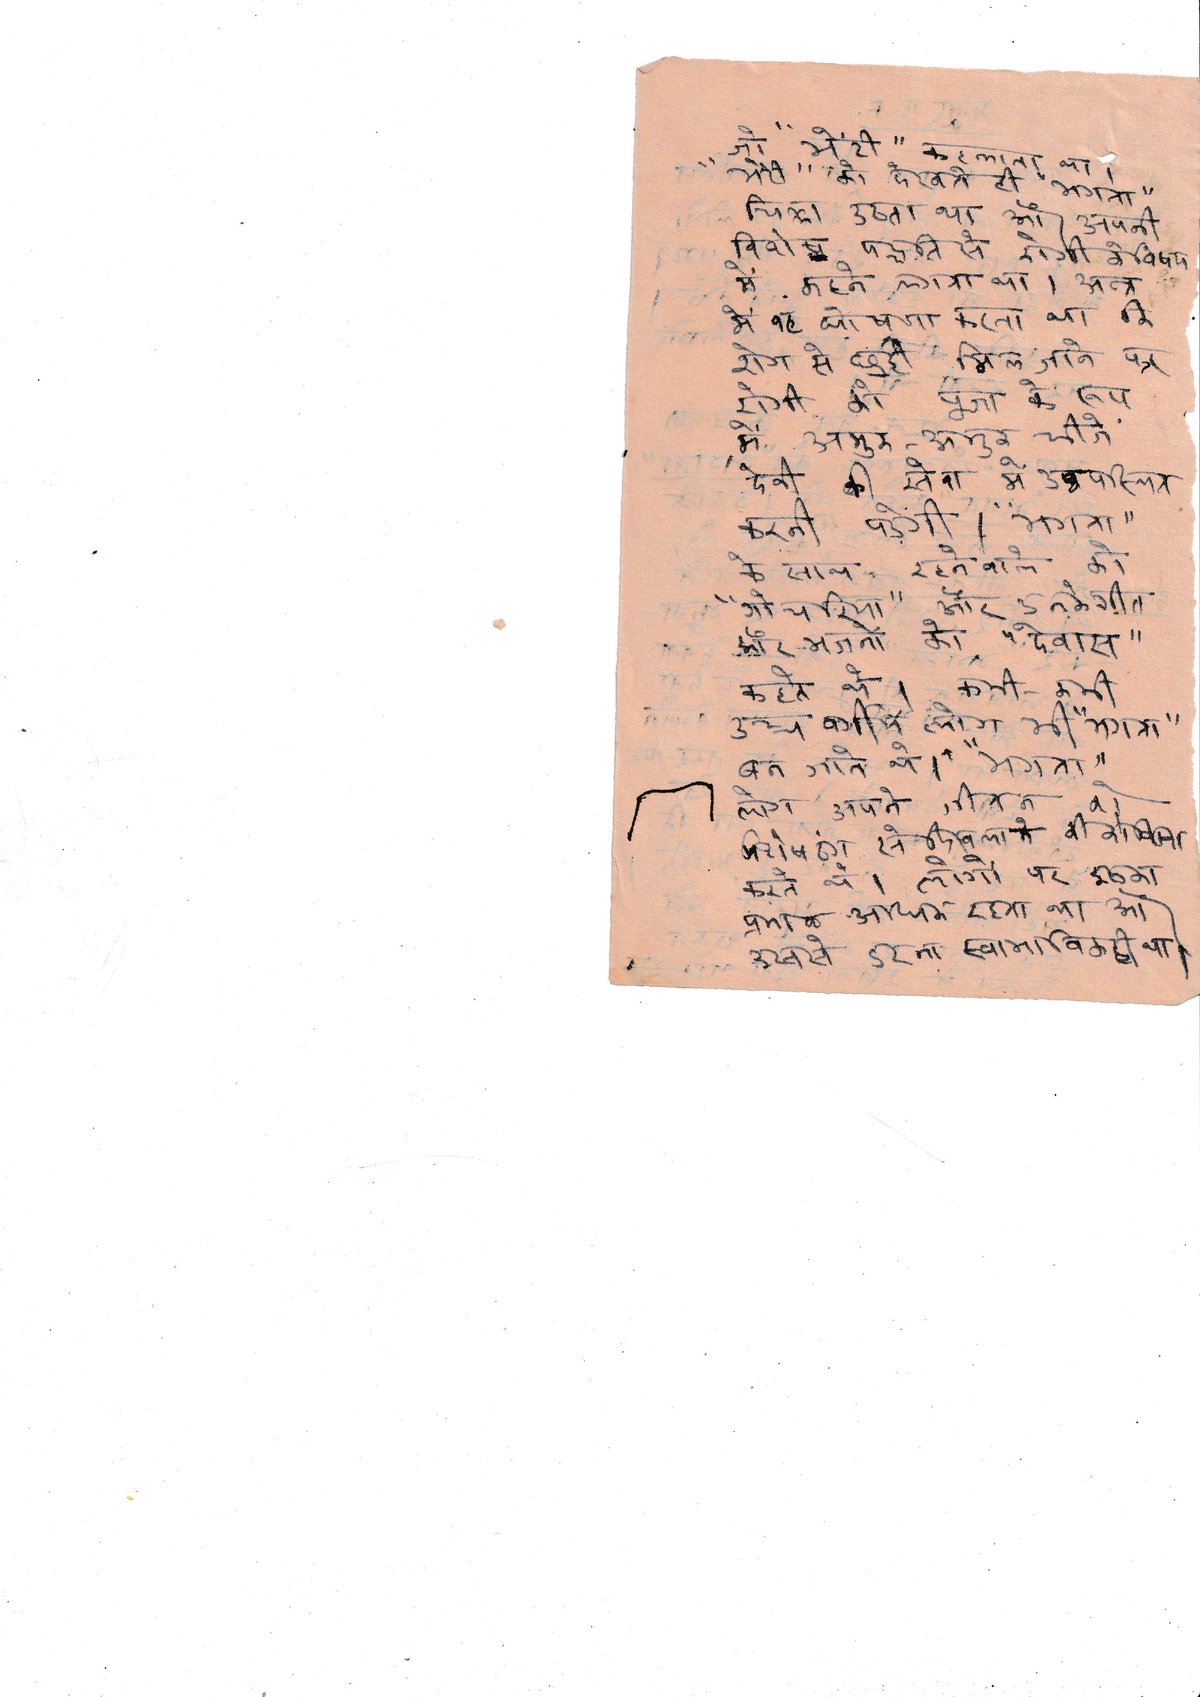 जो "भेंटी" कहलाता था।
"भेंटी" को देखते ही "भगता"
चिल्ला उठता था और अपनी
विशेष पद्धति से रोगी के विषय
में कहने लगता था। अन्त
में वह घोषणा करता था कि
रोग से छुट्टी मिल जाने पर
रोगी को पूजा के रूप
में अमुक-अमुक चीजें
देवी की सेवा में उपस्थित
करनी पड़ेगी। "भगता"
के साथ रहनेवाले को
और उनके गीत
और भजनों को "देवास"
कहते थे। कभी-कभी
उच्च वर्गीय लोग भी "भगता"
बन जाते थे। "भगता"
लोग अपने जीवन को
विशेष ढंग से दिखलाने की कोशिश
करते थे। लोगों पर इनका
प्रभाव अधिक रहता था और
उनसे डरना स्वाभाविक ही था।